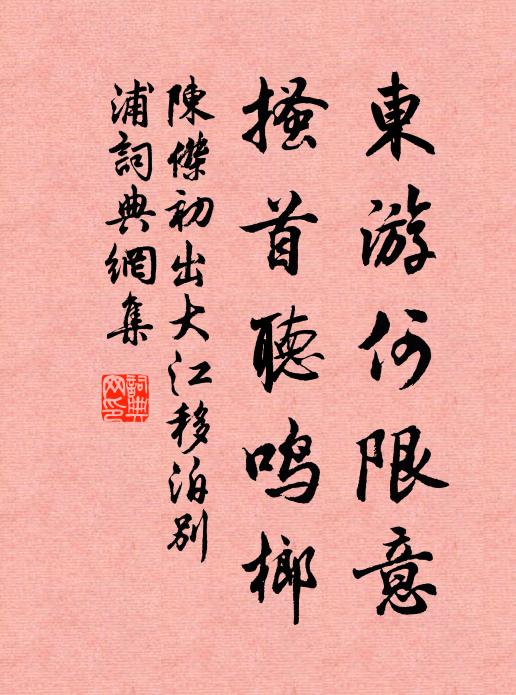 東游何限意
搔首聽鳴榔
陳傑初出大江移泊別
浦詞典網集
詞典
网印